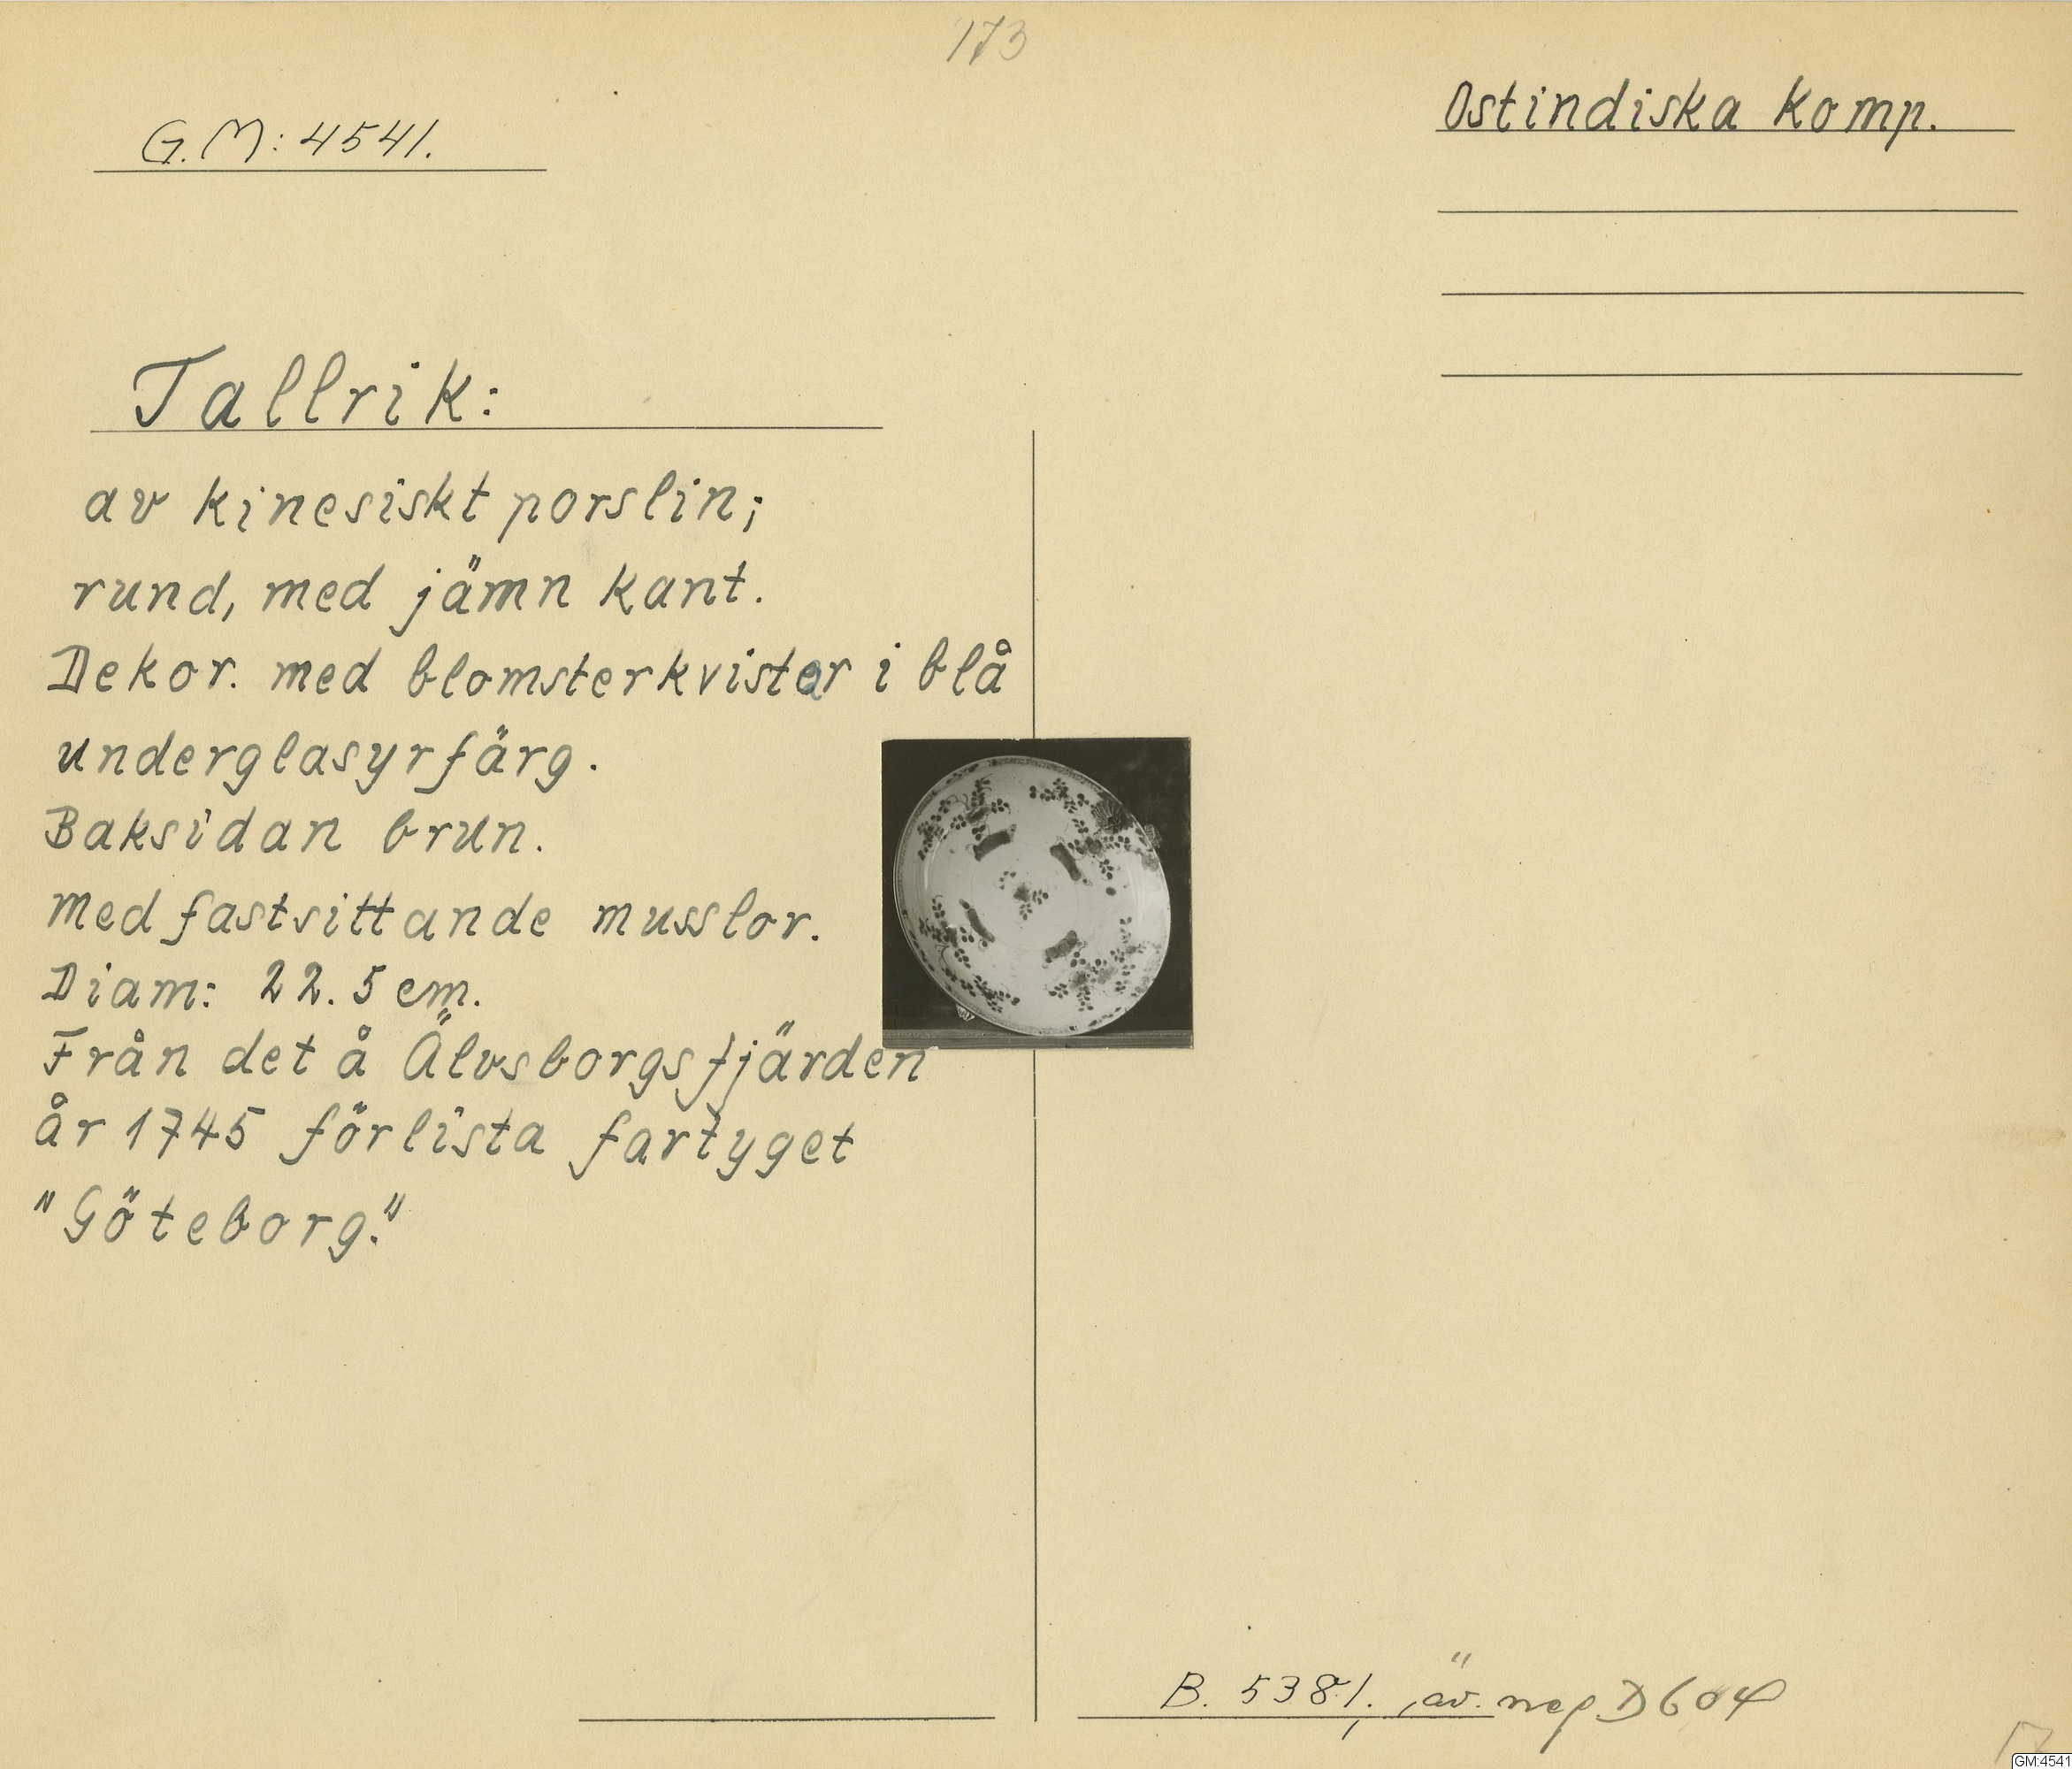 173
G.M: 4541.
Ostindiska Komp.
Tallrik:
av kinesiskt porslin;
rund, med jämn kant.
Dekor. med blomsterkvistar i blå
underglasyrfärg.
Baksidan brun.
med fastsittande musslor.
Diam: 22.5 cm.
Från det å Älvsborgsfjärden
år 1745 förlista fartyget
"Göteborg."
B. 5381. , äv. neg. D 604
GM:4541